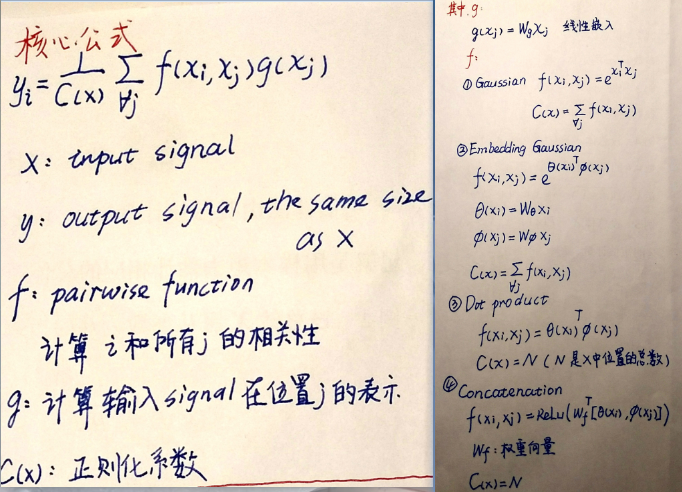 核心公式
y_i = \frac{1}{C(x)} \sum_{\forall j} f(x_i, x_j) g(x_j)
x: input signal
y: output signal, the same size
as x
f: pairwise function
计算 i 和所有 j 的相关性
g: 计算输入signal在位置j的表示
C(x): 正则化系数
其中 g:
g(x_j) = W_g x_j 线性嵌入
f:
① Gaussian f(x_i, x_j) = e^{x_i^T x_j}
C(x) = \sum_{\forall j} f(x_i, x_j)
② Embedding Gaussian
f(x_i, x_j) = e^{θ(x_i)^T φ(x_j)}
θ(x_i) = W_θ x_i
φ(x_j) = W_φ x_j
C(x) = \sum_{\forall j} f(x_i, x_j)
③ Dot product
f(x_i, x_j) = θ(x_i)^T φ(x_j)
C(x) = N ( N 是 X中位置的总数)
④ Concatenation
f(x_i, x_j) = ReLu(W_f^T [θ(x_i), φ(x_j)])
W_f: 权重向量
C(x) = N